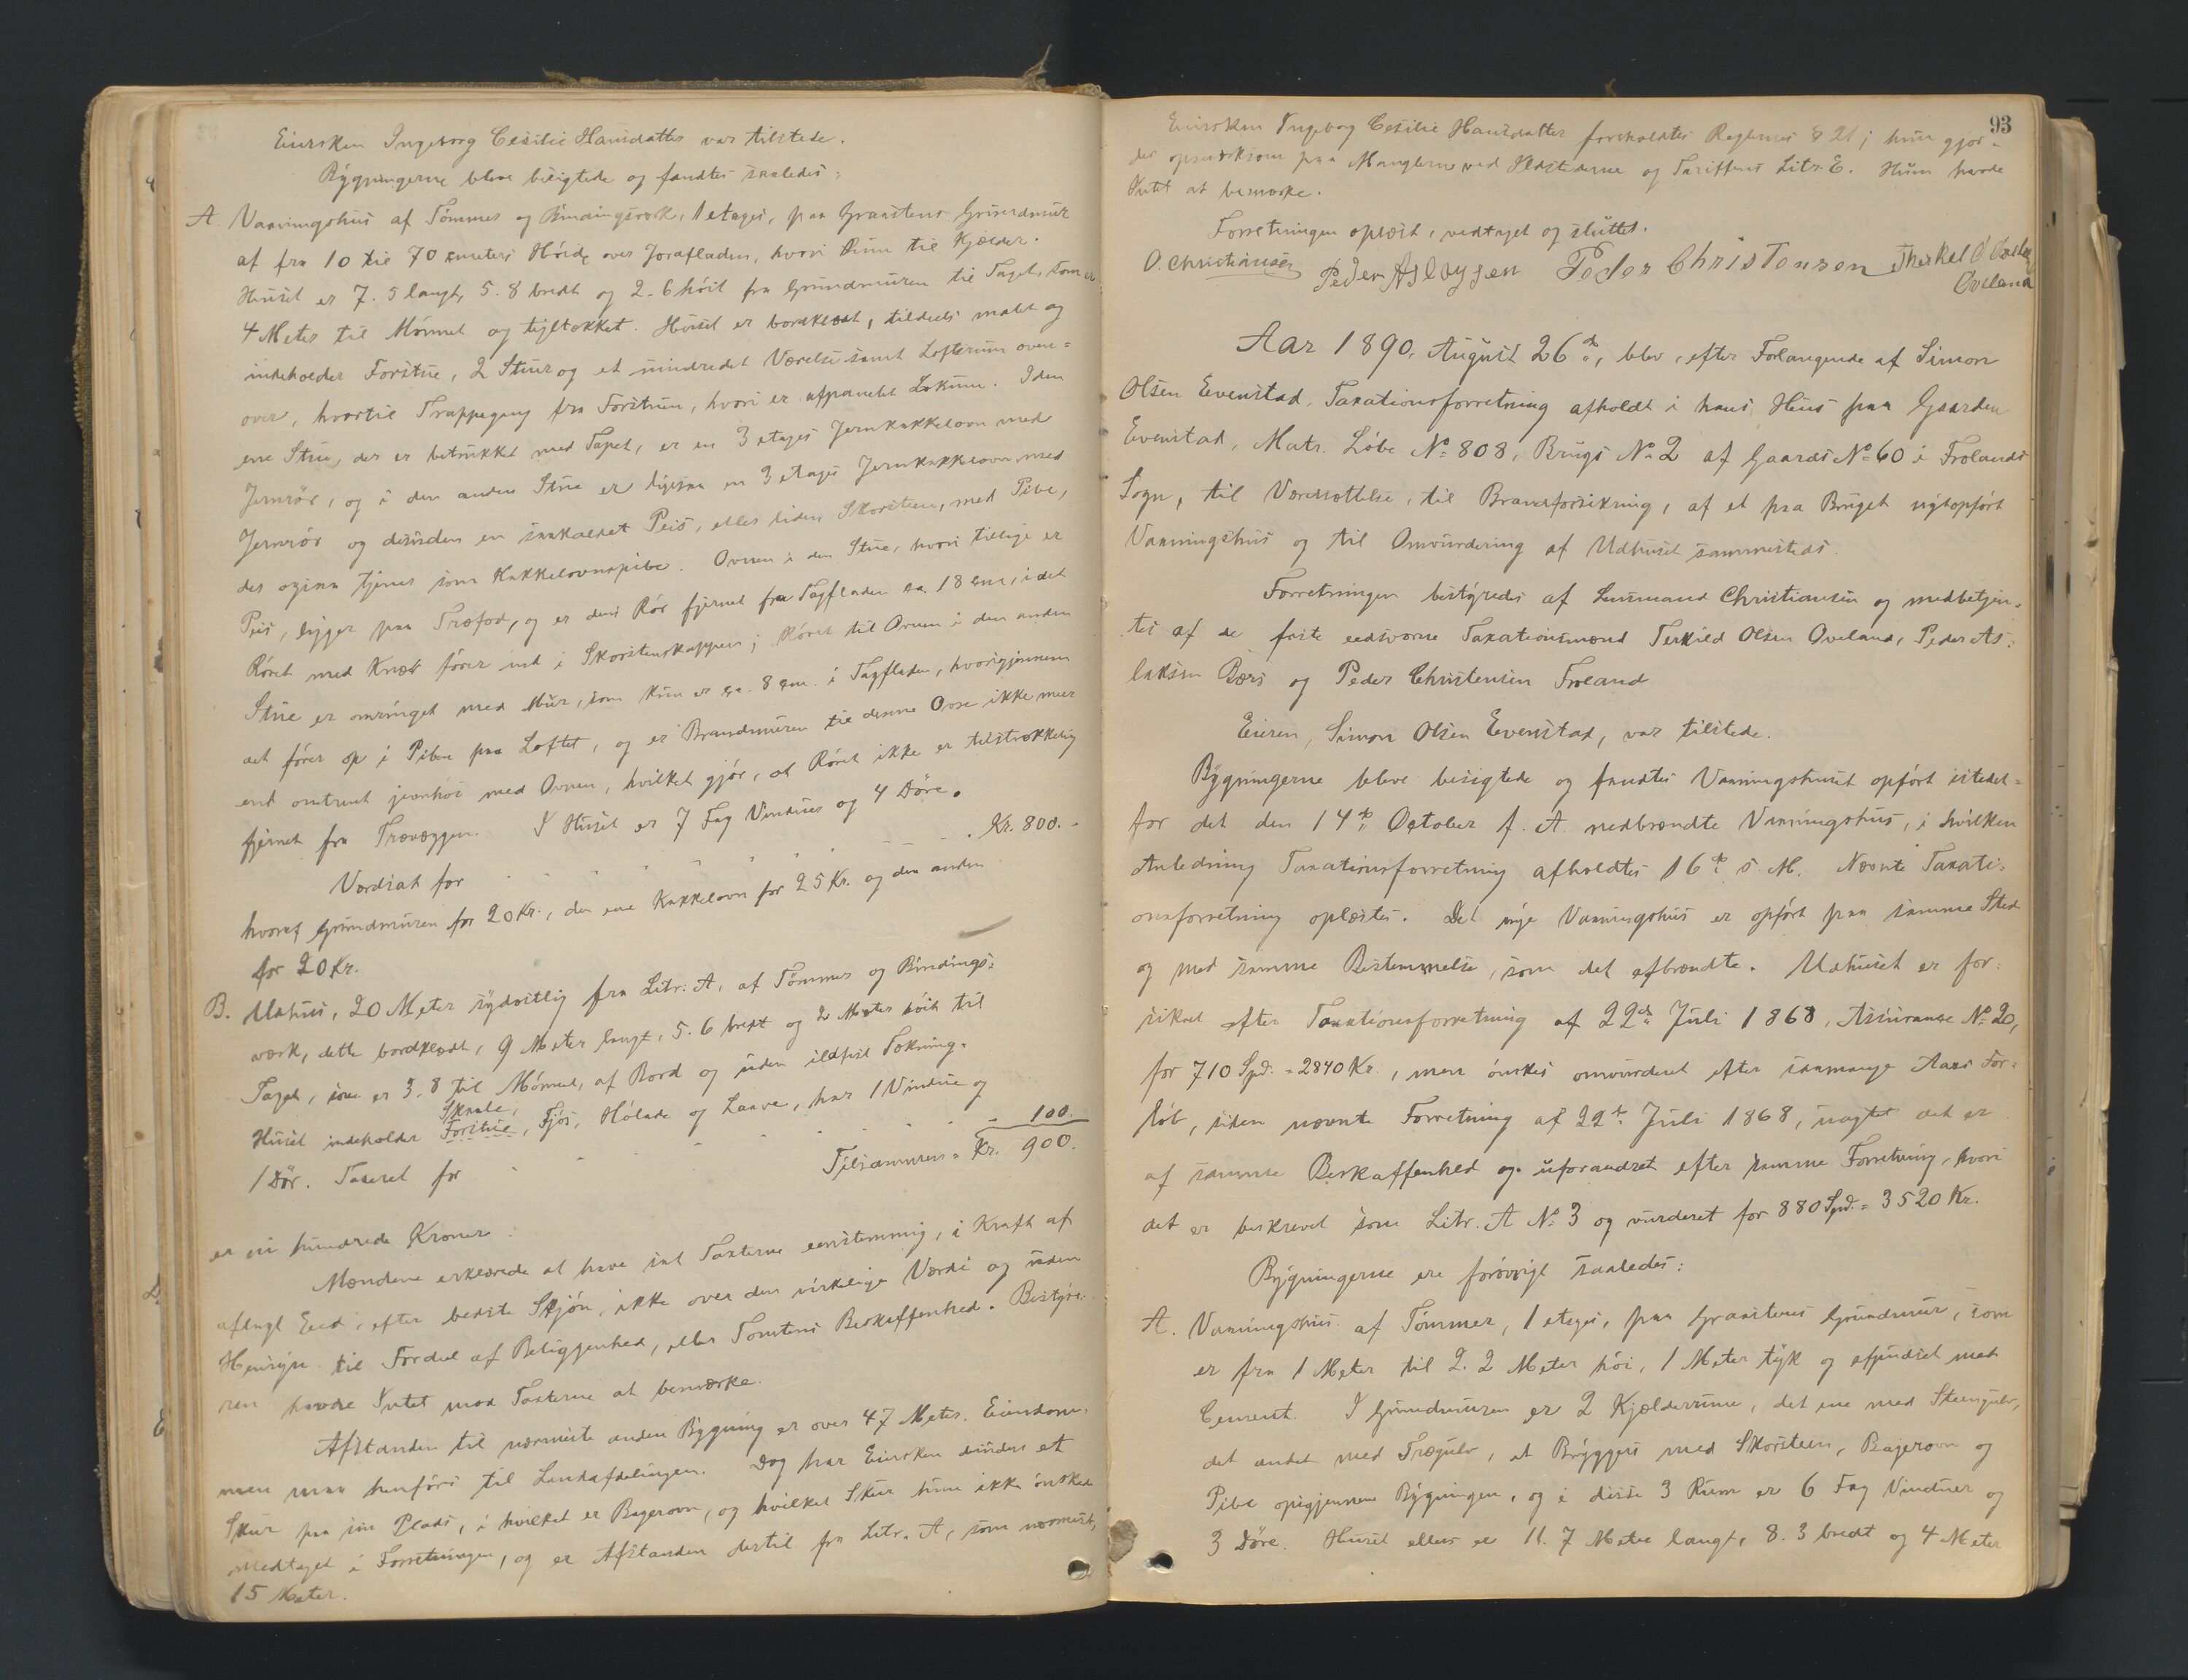 Eiersken Ingeborg Cesilie Hansdatter var tilstede.
Bygningerne bleve besigtede og fandtes saaledes:
A. Vaaningshus af Tømmer og Bindingsværk, 1 etages, paa Graastens Grundmur
af fra 10 til 70 cmeters Høide over Jorafladen, hvori Rum til Kjælder.
Huset er 7.5 langt, 5.8 bredt og 2.6 høit fra Grundmuren til Taget, som er
4 Meter til Mønnet og tegltækket. Huset er bordklædt, tildeels malet og
indeholder Forstue, 2 Stuer og et uindredet Værelse samt Lofterum oven=
over, hvortil Trappegang fra Forstuen, hvori er afpanelet Lokum. I den
ene Stue, der er betrukket med Tapet, er en 3 etages Jernkakkelovn med
Jernrør, og i den anden Stue er ligesaa en 3 etages Jernkakkelovn med
Jernrør og desuden en saakaldet Peis, eller liden Skorsteen, med Pibe,
der ogsaa tjener som Kakkelovnspibe. Ovnen i den Stue, hvori tillige er
Peis, ligger paa Træfod, og er dens Rør fjernet fra Tagfladen ca. 18 cm, idet
Røret med Knæk fører ind i Skorstenskappen; Røret til Ovnen i den anden
Stue er omringet med Mur, som kun er ca. 8 cm. i Tagfladen, hvorigjennem
det fører op i Piben paa Loftet, og er Brandmuren til denne Ovn ikke mere
end omtrent jevnhøi med Ovnen, hvilket gjør, at Røret ikke er tilstrækkelig
fjernet fra Trævæggen. I Huset er 7 Fag Vinduer og 4 Døre.
Værdsat for - - - - - - - Kr. 800. -
hvoraf Grundmuren for 20 Kr., den ene Kakkelovn for 25 Kr. og den anden
for 20 Kr.
B. Udhus, 20 Meter sydostlig fra Litr: A, af Tømmer og Bindings=
værk, dette bordklædt, 9 Meter langt, 5.6 bredt og 2 Meter høit til
Taget, som er 3.8 til Mønnet, af Bord og uden ildfast Tækning.
Skaale,
Huset indeholder Forstue, Fjøs, Hølade og Laave, har 1 Vindue og
1 Dør. Taxeret for - - - - - - 100.
Tilsammen = Kr. 900.
er ni hundrede Kroner.
Mændene erklærede at have sat Taxterne eenstemmig, i Kraft af
aflagt Eed, efter bedste Skjøn, ikke over den virkelige Værdi og uden
Hensyn til Fordel af Beliggenhed, eller Tomtens Beskaffenhed. Bestyre-
ren havde Intet mod Taxterne at bemærke.
Afstanden til nærmeste anden Bygning er over 47 Meter. Eiendom-
men maa henføres til Landafdelingen. Dog har Eiersken desuden et
Skur paa sin Plads, i hvilket er Bagerovn, og hvilket Skur hun ikke ønskede
medtaget i Forretningen, og er Afstanden dertil fra Litr. A, som nærmest,
15 Meter.
93
Eiersken Ingeborg Cesilie Hansdatter foreholdtes Reglernes § 21; hun gjor-
des opmærksom paa Manglerne ved Ildstederne og Tariffens Litr. E. Hun havde
Intet at bemærke.
Forretningen oplæst, vedtaget og sluttet.
O. Christiansen Peder Aslagsen Peder Christensen Therkel O
Oveland
Aar 1890, August 26de, blev, efter Forlangende af Simon
Olsen Evenstad, Taxationsforretning afholdt i hans Hus paa Gaarden
Evenstad, Matr. Løbe No 808, Brugs No 2 af Gaards No 60 i Frolands
Sogn, til Værdsættelse, til Brandforsikring, af et paa Bruget nyopført
Vaaningshus og til Omvurdering af Udhuset sammesteds.
Forretningen bestyredes af Lensmand Christiansen og medbetjen-
tes af de faste eedsvorne Taxationsmænd Terkild Olsen Oveland, Peder As-
laksen Børs og Peder Christensen Froland
Eieren, Simon Olsen Evenstad, var tilstede.
Bygningerne bleve besigtede og fandtes Vaaningshuset opført istedet=
for det den 14de October f. A. nedbrændte Vaaningshus, i hvilken
Anledning Taxationsforretning afholdtes 16de s. M. Nævnte Taxati-
onsforretning oplæstes. Det nye Vaaningshus er opført paa samme Sted
og med samme Bestemmelse, som det afbrændte. Udhuset er for-
sikret efter Taxationsforretning af 22de Juli 1868, Assurance No 20,
for 710 Spd. = 2840 Kr., men ønskes omvurderet efter saamange Aars For-
løb, siden nævnte Forretning af 22de Juli 1868, uagtet det er
af samme Beskaffenhed og uforandret efter samme Forretning, hvori
det er beskrevet som Litr. A No 3 og vurderet for 880 Spd. = 3520 Kr.
Bygningerne ere forøvrigt saaledes:
A. Vaaningshus af Tømmer, 1 etages, paa Graastens Grundmur, som
er fra 1 Meter til 2.2 Meter høi, 1 Meter tyk og afpudset med
Cement. I Grundmuren er 2 Kjælderrum, det ene med Steengulv,
det andet med Trægulv, et Bryggers med Skorsteen, Bagerovn og
Pibe opigjennem Bygningen, og i disse 3 Rum er 6 Fag Vinduer og
3 Døre. Huset ellers er 11.7 Meter langt, 8.3 bredt og 4 Meter